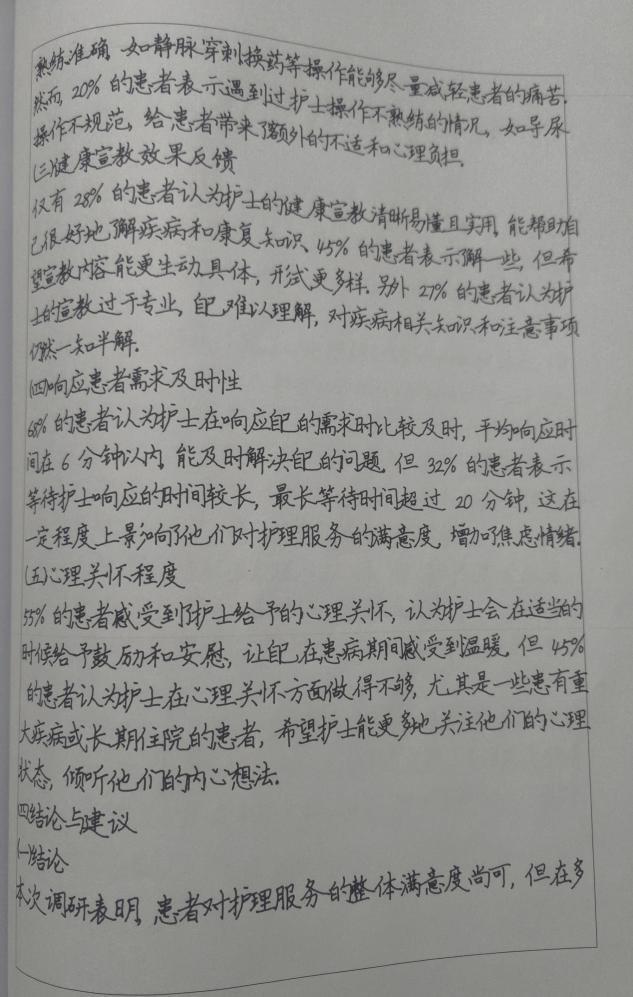 熟练准确，如静脉穿刺换药等操作能够尽量减轻患者的痛苦.
然而，20%的患者表示遇到过护士操作不熟练的情况，如导尿
操作不规范，给患者带来了额外的不适和心理负担.
(三)健康宣教效果反馈
仅有28%的患者认为护士的健康宣教清晰易懂且实用，能帮助自
己很好地了解疾病和康复知识、45%的患者表示了解一些，但希
望宣教内容能更生动具体，形式更多样. 另外27%的患者认为护
士的宣教过于专业，自己难以理解，对疾病相关知识和注意事项
仍然一知半解.
(四)响应患者需求及时性
68%的患者认为护士在响应自己的需求时比较及时，平均响应时
间在6分钟以内，能及时解决自己的问题，但32%的患者表示
等待护士响应的时间较长，最长等待时间超过20分钟，这在
一定程度上影响了他们对护理服务的满意度，增加了焦虑情绪.
(五)心理关怀程度
55%的患者感受到了护士给予的心理关怀，认为护士会在适当的
时候给予鼓励和安慰，让自己在患病期间感受到温暖，但45%
的患者认为护士在心理关怀方面做得不够，尤其是一些患有重
大疾病或长期住院的患者，希望护士能更多地关注他们的心理
状态，倾听他们的内心想法.
四结论与建议
(一)结论
本次调研表明，患者对护理服务的整体满意度尚可，但在多